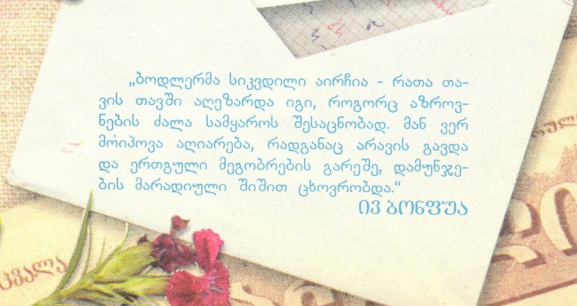 „ბოდლერმა სიკვდილი აირჩია - რათა თა-
ვის თავში აღეზარდა იგი, როგორც აზროვ-
ნების ძალა სამყაროს შესაცნობად. მან ვერ
მოიპოვა აღიარება, რადგანაც არავის გავდა
და ერთგული მეგობრების გარეშე, დამუნჯე-
ბის მარადიული შიშით ცხოვრობდა.“
ივ ბონფუა